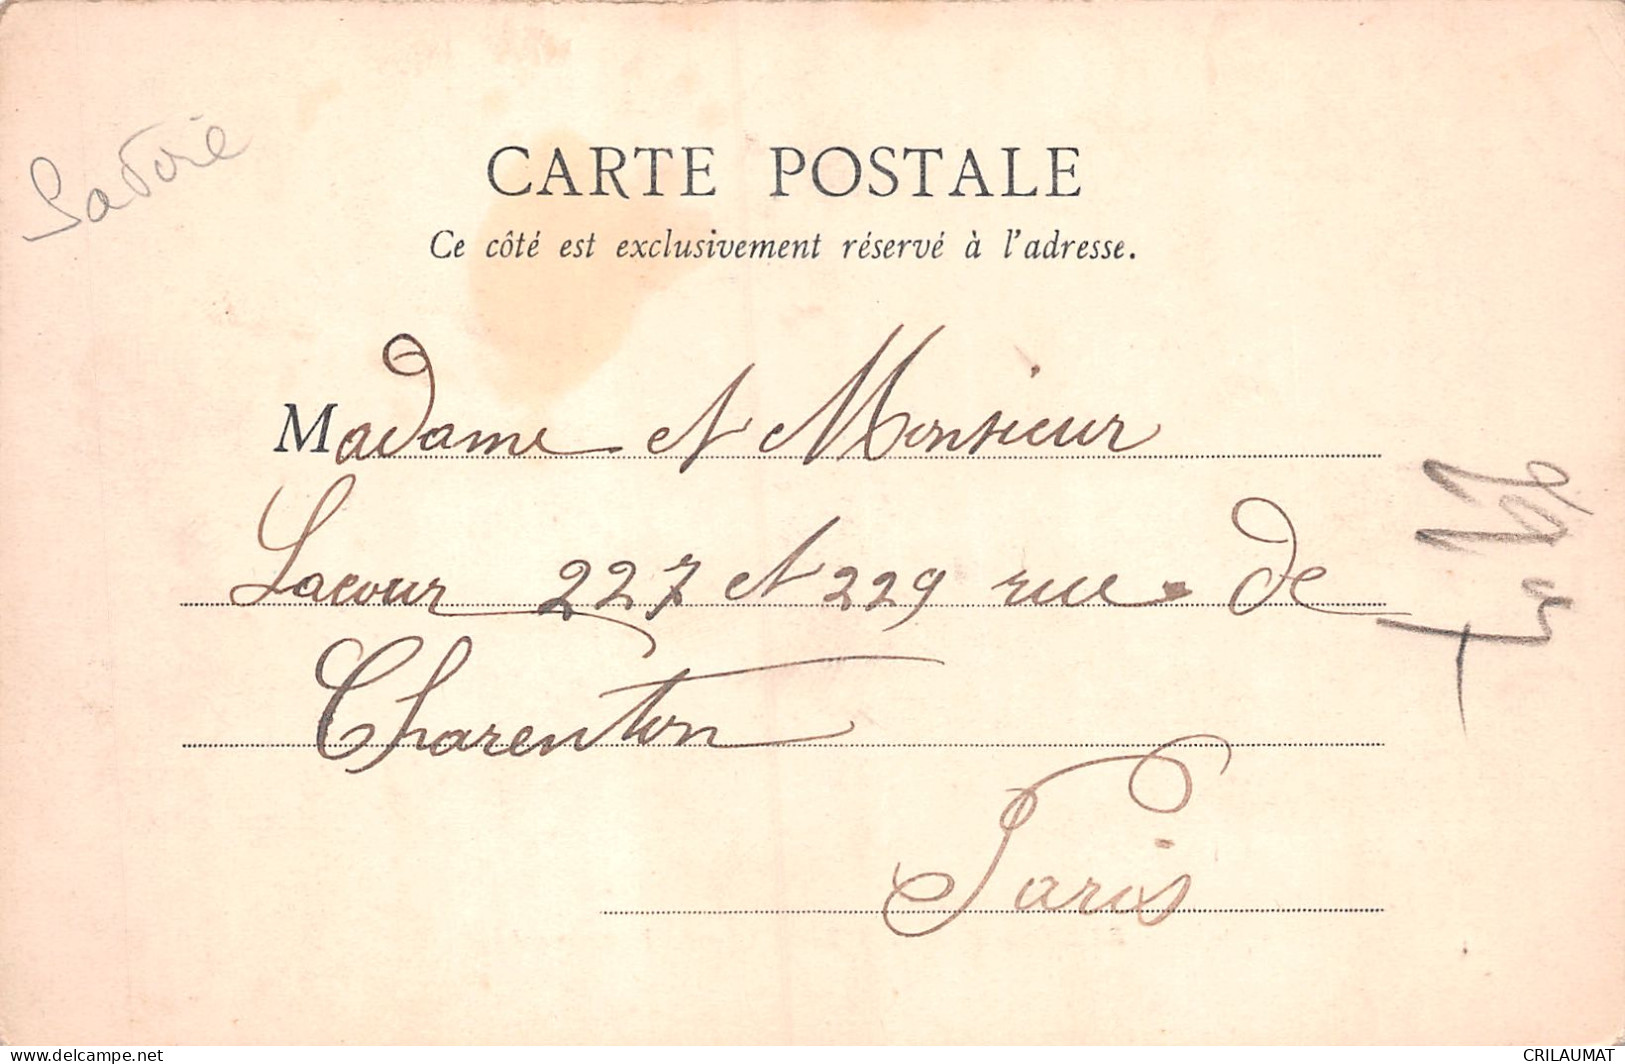 Savoie
CARTE POSTALE
Ce côté est exclusivement réservé à l'adresse.
Madame et Monsieur
Lacour 227 et 229 rue de
Charenton
Paris
delcampe.net
CRILAUMAT